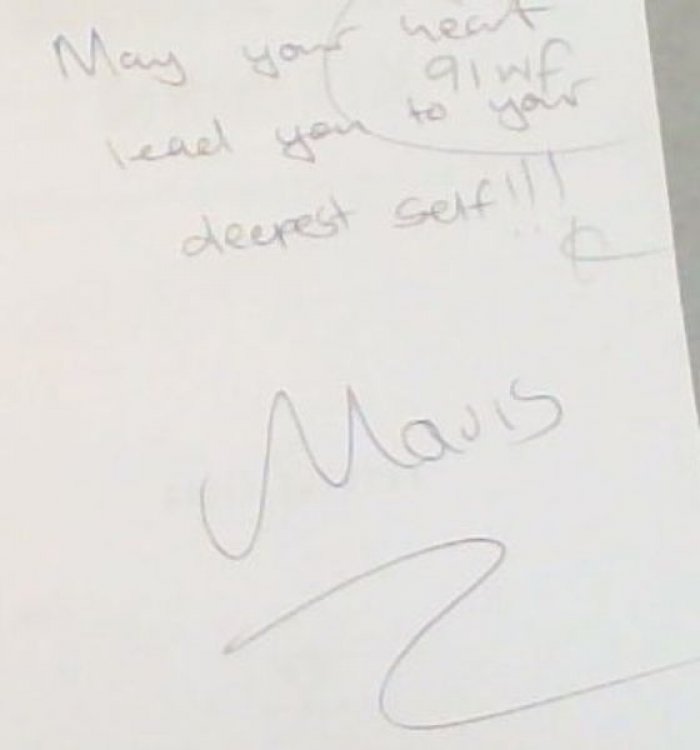 May your heart
91wf
lead you to your
deepest self!!!
Mavis